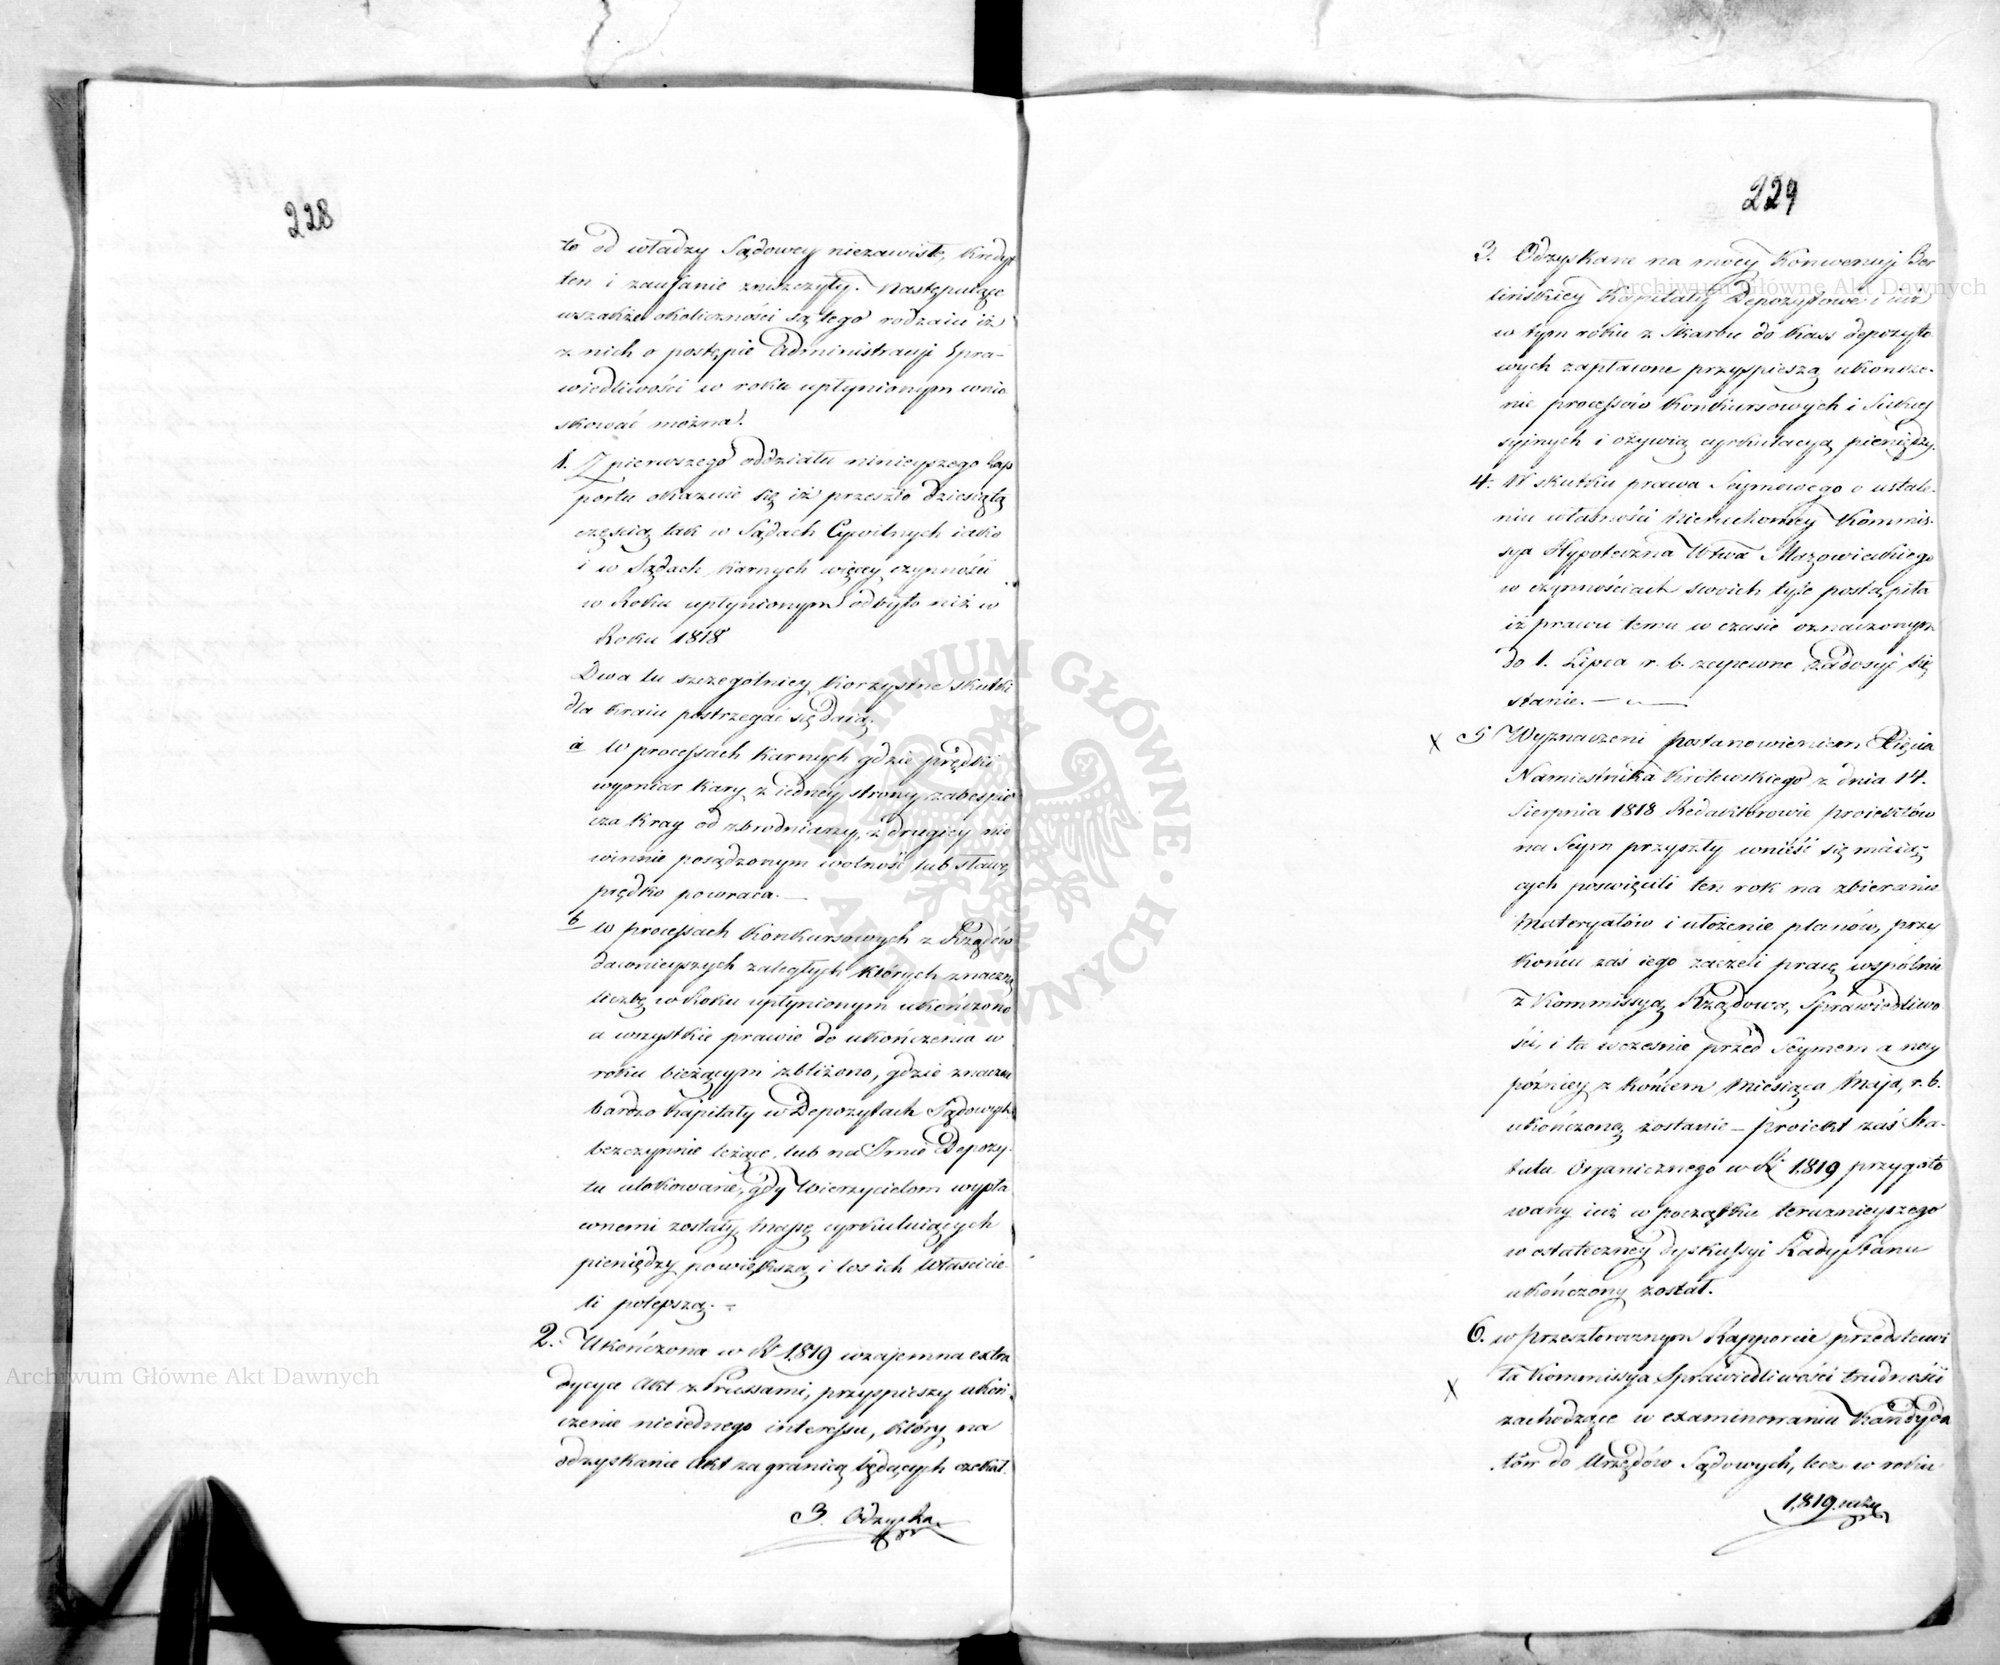 228
to od władzy Sądowey niezawisłe, kredyt
ten i zaufanie zniszczyły. Następuiące
wszakże okoliczności są tego rodzaiu iż
z nich o postępie Administracyi Spra-
wiedliwości w roku upłynionym wnio
skować można.
1. Z pierwszego oddziału ninieyszego Rap
portu okazuie się iż przeszło dziesiątą
częścią tak w Sądach Cywilnych iako
i w Sądach Karnych więcey czynności
w Roku upłynionym odbyto niż w
Roku 1818
Dwa tu szczególniey korzystne skutki
dla kraiu postrzegać się daią.
a w processach karnych gdzie prędki
wymiar kary z iedney strony zabespie
cza kray od zbrodniarzy, z drugiey nie
winnie posądzonym wolność lub sławę
prędko powraca. —
b w processach konkursowych z Rządów
dawnieyszych zaległych których znaczną
liczbę w Roku upłynionym ukończono
a wszystkie prawie do ukończenia w
roku bieżącym zbliżono, gdzie znaczne
bardzo kapitały w Depozytach Sądowych
bezczynnie leżące, lub na Imie Depozy-
tu ulokowane, gdy Wierzycielom wypła
conemi zostały, massę cyrkuluiących
pieniędzy powiększą i los ich właścicie
li polepszą. —
2. Ukończona w R. 1819 wzajemna extra
dycya Akt z Prussami, przyspieszy ukoń
czenie nieiednego interessu, który na
odzyskanie Akt za granicą będących czekał.
3. Odzyska
229
3. Odzyskane na mocy Konwencyi Ber
lińskiey Kapitały Depozytowe i iuż
w tym roku z Skarbu do Kass depozyto
wych zapłacone przyspieszą ukończe-
nie processów Konkursowych i Sukces
syinych i ożywią cyrkulacyą pieniędzy.
4. W skutku prawa Seymowego o ustale-
niu własności Nieruchomey Kommis-
sya Hypoteczna Wtwa Mazowieckiego
w czynnościach swoich tyle postąpiła
iż prawu temu w czasie oznaczonym
do 1. Lipca r. b. zapewne zadosyć się
stanie. —
x 5 Wyznaczeni postanowieniem Xięcia
Namiestnika Królewskiego z dnia 14.
Sierpnia 1818 Redaktorowie proiektów
na Seym przyszły wnieść się maią-
cych poswięcili ten rok na zbieranie
materyałów i ułożenie planów, przy
końcu zaś iego zaczeli pracę wspólnie
z Kommissyą Rządową Sprawiedliwo
ści, i ta wcześnie przed Seymem a nay
późniey z końcem Miesiąca Maja, r. b.
ukończoną zostanie — proiekt zaś Sta-
tutu Organicznego w R. 1819 przygoto
wany iuż w początku teraznieyszego
w ostateczney dyskussyi Rady Stanu
ukończony został.
6. w przeszłorocznym Rapporcie przedstawi
ła Kommissya Sprawiedliwości trudności
x
zachodzące w examinowaniu Kandyda
tów do Urzędów Sądowych, lecz w roku
1819
Archiwum Główne Akt Dawnych
Archiwum Główne Akt Dawnych
ARCHIWUM GŁÓWNE AKT DAWNYCH